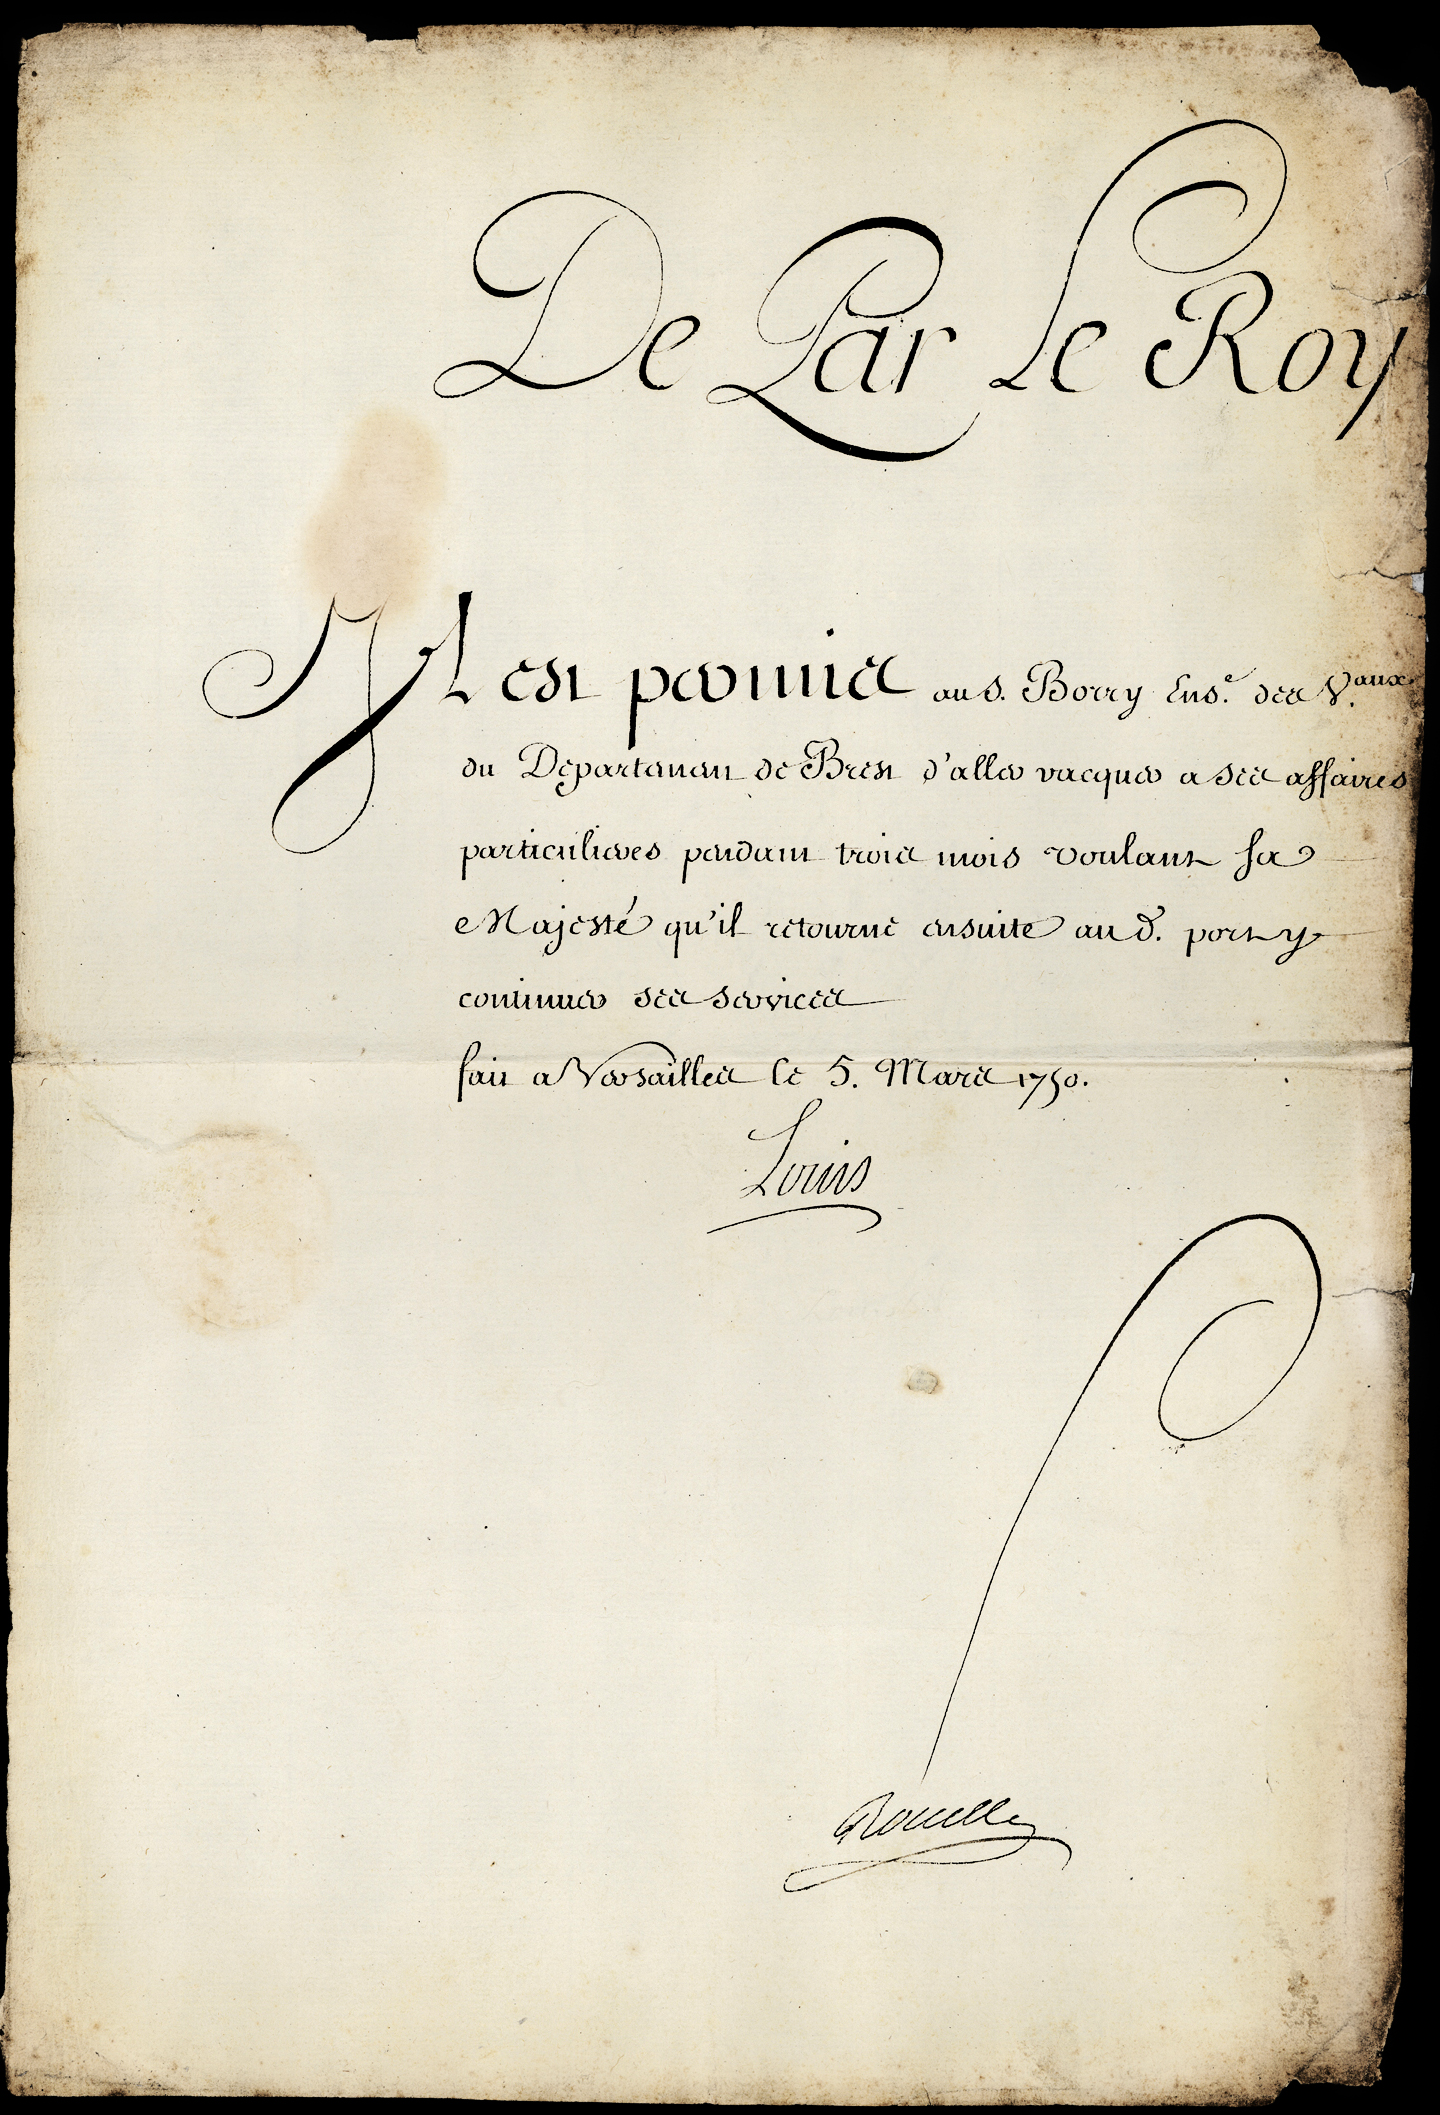 De Par Le Roy
Il est permis au S. Borry Ens.e des V.aux
du Departement de Brest d'aller vacquer a ses affaires
particulieres pendant trois mois voulant sa
Majesté qu'il retourne ensuite aud. port y
continuer ses services
fait a Versailles le 5. Mars 1750.
Louis
Rouillé